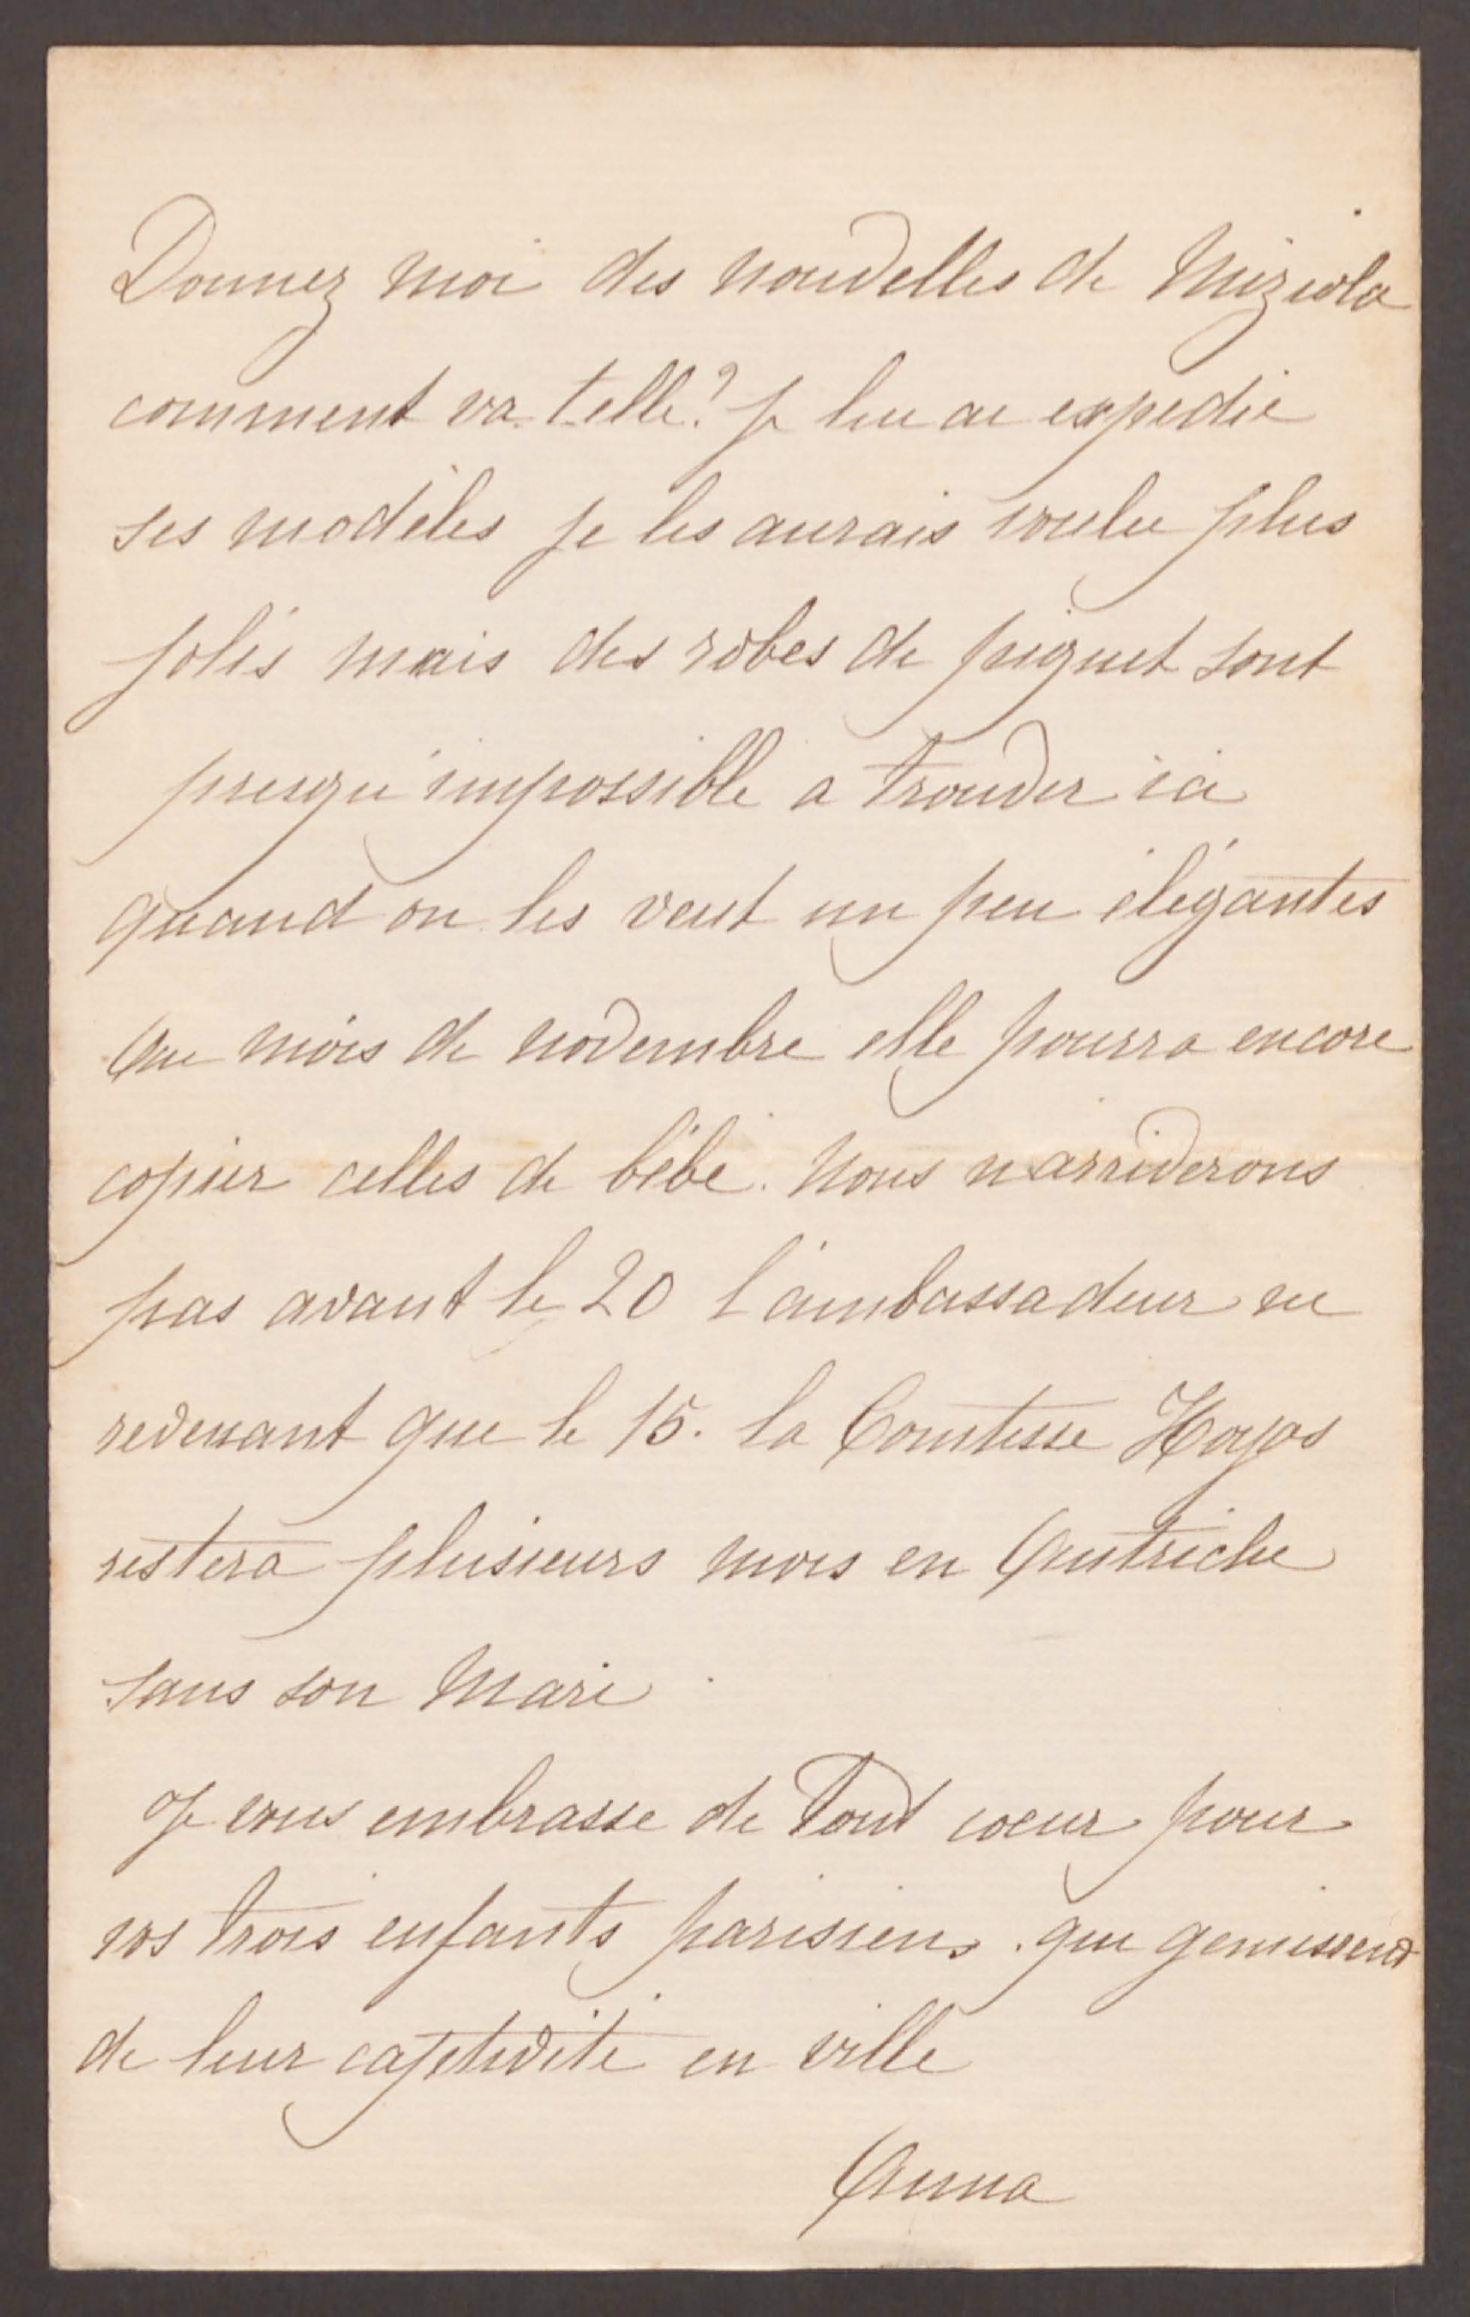 Donnez moi des nouvelles de Miziola
comment va-t-elle? Je lui ai expedié
ses modèles je les aurais voulu plus
jolis mais des robes de piquet sont
presqu'impossible a trouver ici
quand on les veut un peu élégantes
Au mois de novembre elle pourra encore
copier celles de bébé. Nous n'arriverons
pas avant le 20 l'ambassadeur ne
revenant que le 15. la Comtesse Hoyos
restera plusieurs mois en Autriche
sans son Mari.
Je vous embrasse de tout coeur pour
vos trois enfants parisiens. qui gemissent
de leur captivité en ville
Anna